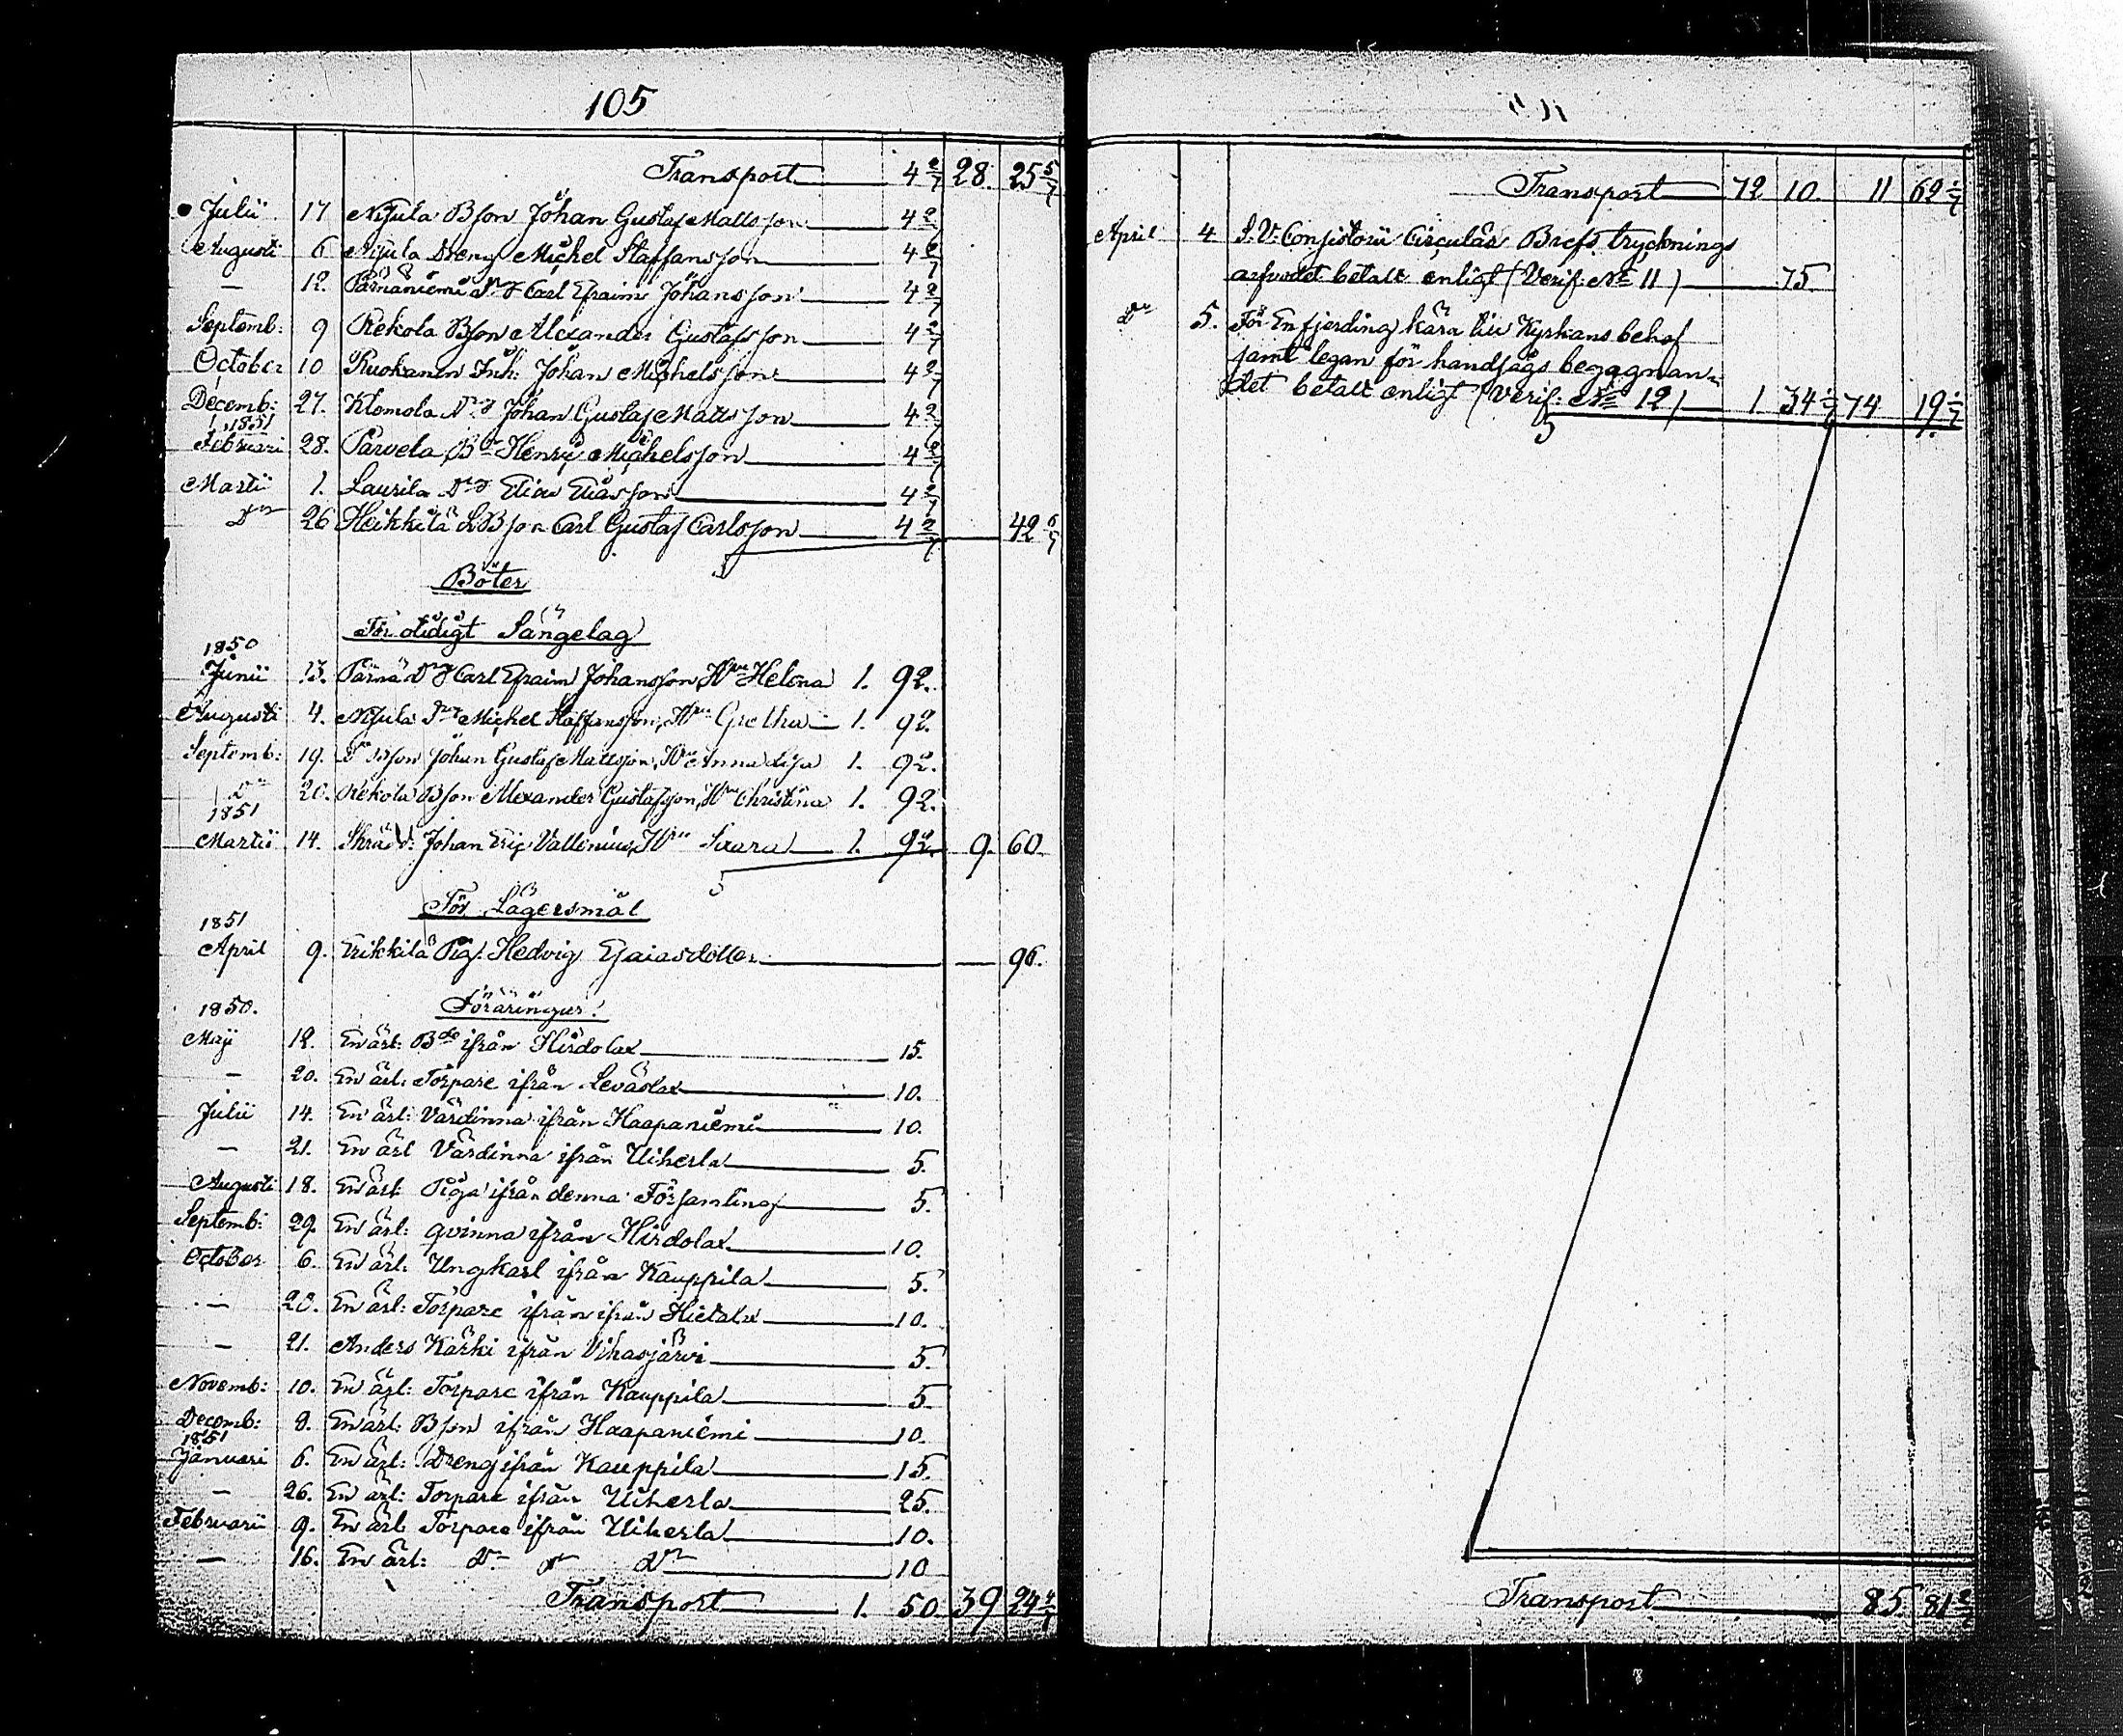 105
Transport 4 2/7 28. 25 5/7
Julii 17 Nijula Bson Johan Gustaf Mattsson 4 2/7
Augusti 6 Nijula Dreng Michel Staffansson 4 2/7
— 12. Pärnäniemi Dr Carl Efraim Johansson 4 2/7
Septemb: 9 Rekola Bson Alexander Gustafsson 4 2/7
October 10 Ruokanen Inh: Johan Michelsson 4 2/7
Decemb: 27. Klemola Drg Johan Gustaf Mattsson 4 2/7
1851
Februari 28. Parvela Bn Henric Michelsson 4 2/7
Martii 1. Laurila Drg Elias Eliasson 4 2/7
Do 26 Heikkilä LBson Carl Gustaf Carlsson 4 2/7 42 6/7
Böter
För otidigt Sängelag
1850
Junii 13. Pärnä Drg Carl Efraim Johansson, Hru Helena 1. 92.
Augusti 4. Nijula Drg Michel Staffansson, Hru Gretha 1. 92.
Septemb: 19. Do Bson Johan Gustaf Mattsson, Hru Anna Lisa 1. 92.
Do 20. Rekola Bson Alexander Gustafsson, Hru Christina 1. 92.
1851
Martii 14. Skrädd: Johan Eric Vallenius, Hru Saara 1. 92. 9. 60.
För Lägersmål
1851
April 9. Erikkilä Pig. Hedvig Esaiasdotter — 96.
1850. Föräringar:
Maji 12. En ärl: Bde ifrån Hirdolax 15.
— 20. En ärl: Torpare ifrån Leväslax 10.
Julii 14. En ärl: Värdinna ifrån Haapaniemi 10.
— 21. En ärl Värdinna ifrån Uiherla 5.
Augusti 18. En ärl: Piga ifrån denna Församling 5.
Septemb: 29. En ärl: qvinna ifrån Hirdolax 10.
October 6. En ärl: Ungkarl ifrån Kauppila 5.
— 20. En ärl: Torpare ifrån ifrån Hietala 10.
— 21. Anders Kärki ifrån Vihasjärvi 5.
Novemb: 10. En ärl: Torpare ifrån Kauppila 5.
Decemb: 8. En ärl: Bson ifrån Haapaniemi 10.
1851
Januari 6. En ärl: Dreng ifrån Kauppila 15.
— 26. En ärl: Torpare ifrån Uiherla 25.
Februarii 9. En ärl: Torpare ifrån Uiherla 10.
— 16. En ärl: Do Do Do 10
Transport 1. 50 39 24 4/7
Transport 72 10. 11 62 1/7
April 4. S.V. Consistorii Circulär Brefs trycknings
arfvodet betalt enligt (Verif: No 11) 75
Do 5. För En fjerding kära till Kyrkans behof
samt legan för handsågs begagnan-
det betalt enligt (Verif: No 12) 1. 34 1/7 74 19 1/7
Transport 85. 81 2/7